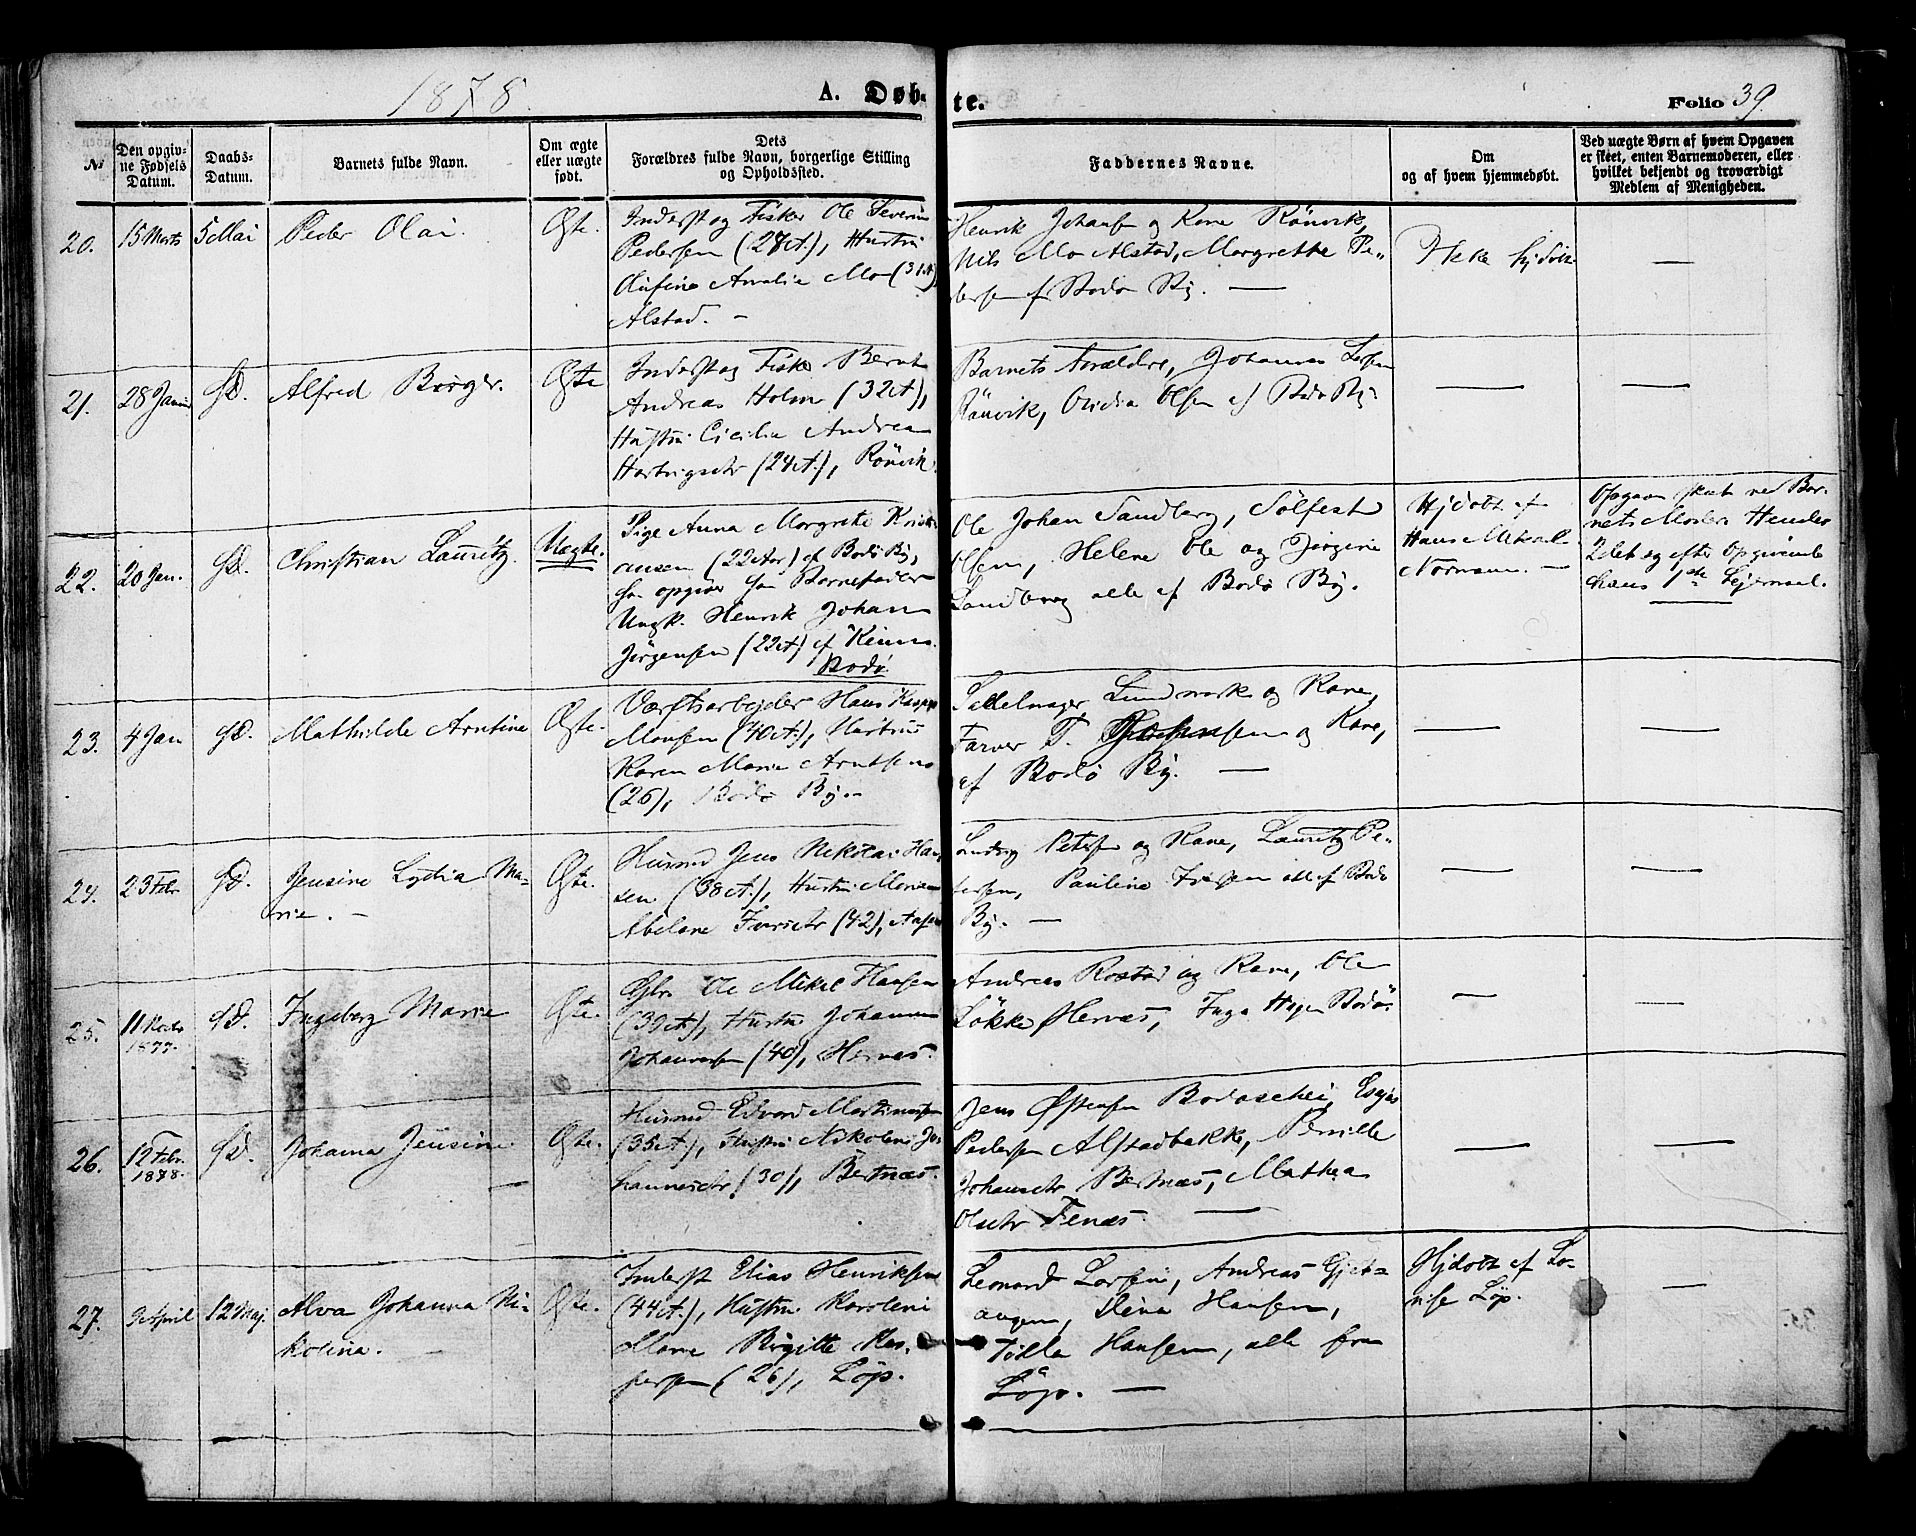 1878.
A. Døb- te.
Folio 39.
№
Den opgiv-
ne Fødsels
Datum.
Daabs-
Datum.
Barnets fulde Navn.
Om ægte
eller uægte
født.
Dets
Forældres fulde Navn, borgerlige Stilling
og Opholdssted.
Faddernes Navne.
Om
og af hvem hjemmedøbt.
Ved uægte Børn af hvem Opgaven
er skeet, enten Barnemoderen, eller
hvilket bekjendt og troværdigt
Medlem af Menigheden.
20.
15 Marts
5 Mai
Peder Olai.
Ægte.
Inderst og Fisker Ole Severin
Pedersen (28 At.), Hustru
Olufine Amalie Mo (31 At)
Alstad. -
Henrik Johansen og Kone Rönvik,
Nils Mo Alstad, Margrethe Pe-
dersen af Bodø By. —
Ikke hjdöbt
—
21.
28 Januar
SD.
Alfred Birger.
Ægte
Inderst og Fisker Bernt
Andreas Holm (32 At),
Hustru Cicilie Andrea
Hartvigsdtr (24 At.), Rönvik.
Barnets Forældre, Johannes Larsen
Rönvik, Olidia Olsen af Bodø By.
—
—
22.
20 Jan.
SD.
Christian Lauritz.
Uægte.
Pige Anna Margrete Kristi-
ansen (22 Aar) af Bodø By,
som opgiver som Barnefader
Ungk. Henrik Johan
Jörgensen (22 At) af
Bodø
Ole Johan Sandberg, Sölfest
Olsen, Helene Ole og Jörgine
Sandberg alle af Bodø By.
Hjdöbt af
Hans Mikal
Normann. —
Opgaven skeet ved Bar-
nets Moder. Hendes
2det og efter Opgivende
hans 1ste Leiermaal.
23.
4 Jan
SD.
Mathilde Arntine
Ægte.
Værftsarbejder Hans
Monsen (40 At.), Hustru
Karen Marie Arntsen
(26), Bodø By. -
Sadelmager Lundmark og Kone,
Farver T. og Kone,
af Bodø By. —
—
—
24.
23 Febr.
SD.
Jensine Lydia Ma-
rie. —
Ægte.
Husmd Jens Nikolai Han-
sen (38 At.), Hustru
Abelone (42),
Ludvig Petersen og Kone, Lauritz Pe-
tersen, Pauline alle af Bodø
By. —
—
—
25.
11
1877.
SD.
Ingeborg Marie
Ægte.
Gbr. Ole Mikal Hansen
(39 At), Hustru Johanna
Johannesen (40), Hernæs.
Andreas Rostad og Kone, Ole
Løkke Hernæs, Inga Hagen Bodø
—
—
26.
12 Febr.
1878.
SD.
Johanna Jensine
—
Ægte.
Husmd Edvard Martinussen
(35 At), Hustru Nikoline Jo-
hannesdtr (30), Bertnæs.
Jens Østensen Bodøschei,
Pedersen Alstadbakke, Pernille
Johansdtr Bertnæs, Mathea
Olsdtr Fenæs. —
—
—
27.
9 April
12 Maj.
Alva Johanna Ni-
kolina. —
Ægte.
Inderst Elias Henriksen
(44 At), Hustru Karoline
Marie Birgitte Kas-
persen (26), Löp.
Leonard Larsen, Andreas
Elena Hansen,
Tökla Hansen, alle fra
Löp. —
Hjdöbt af Lo-
vise Löp.
—